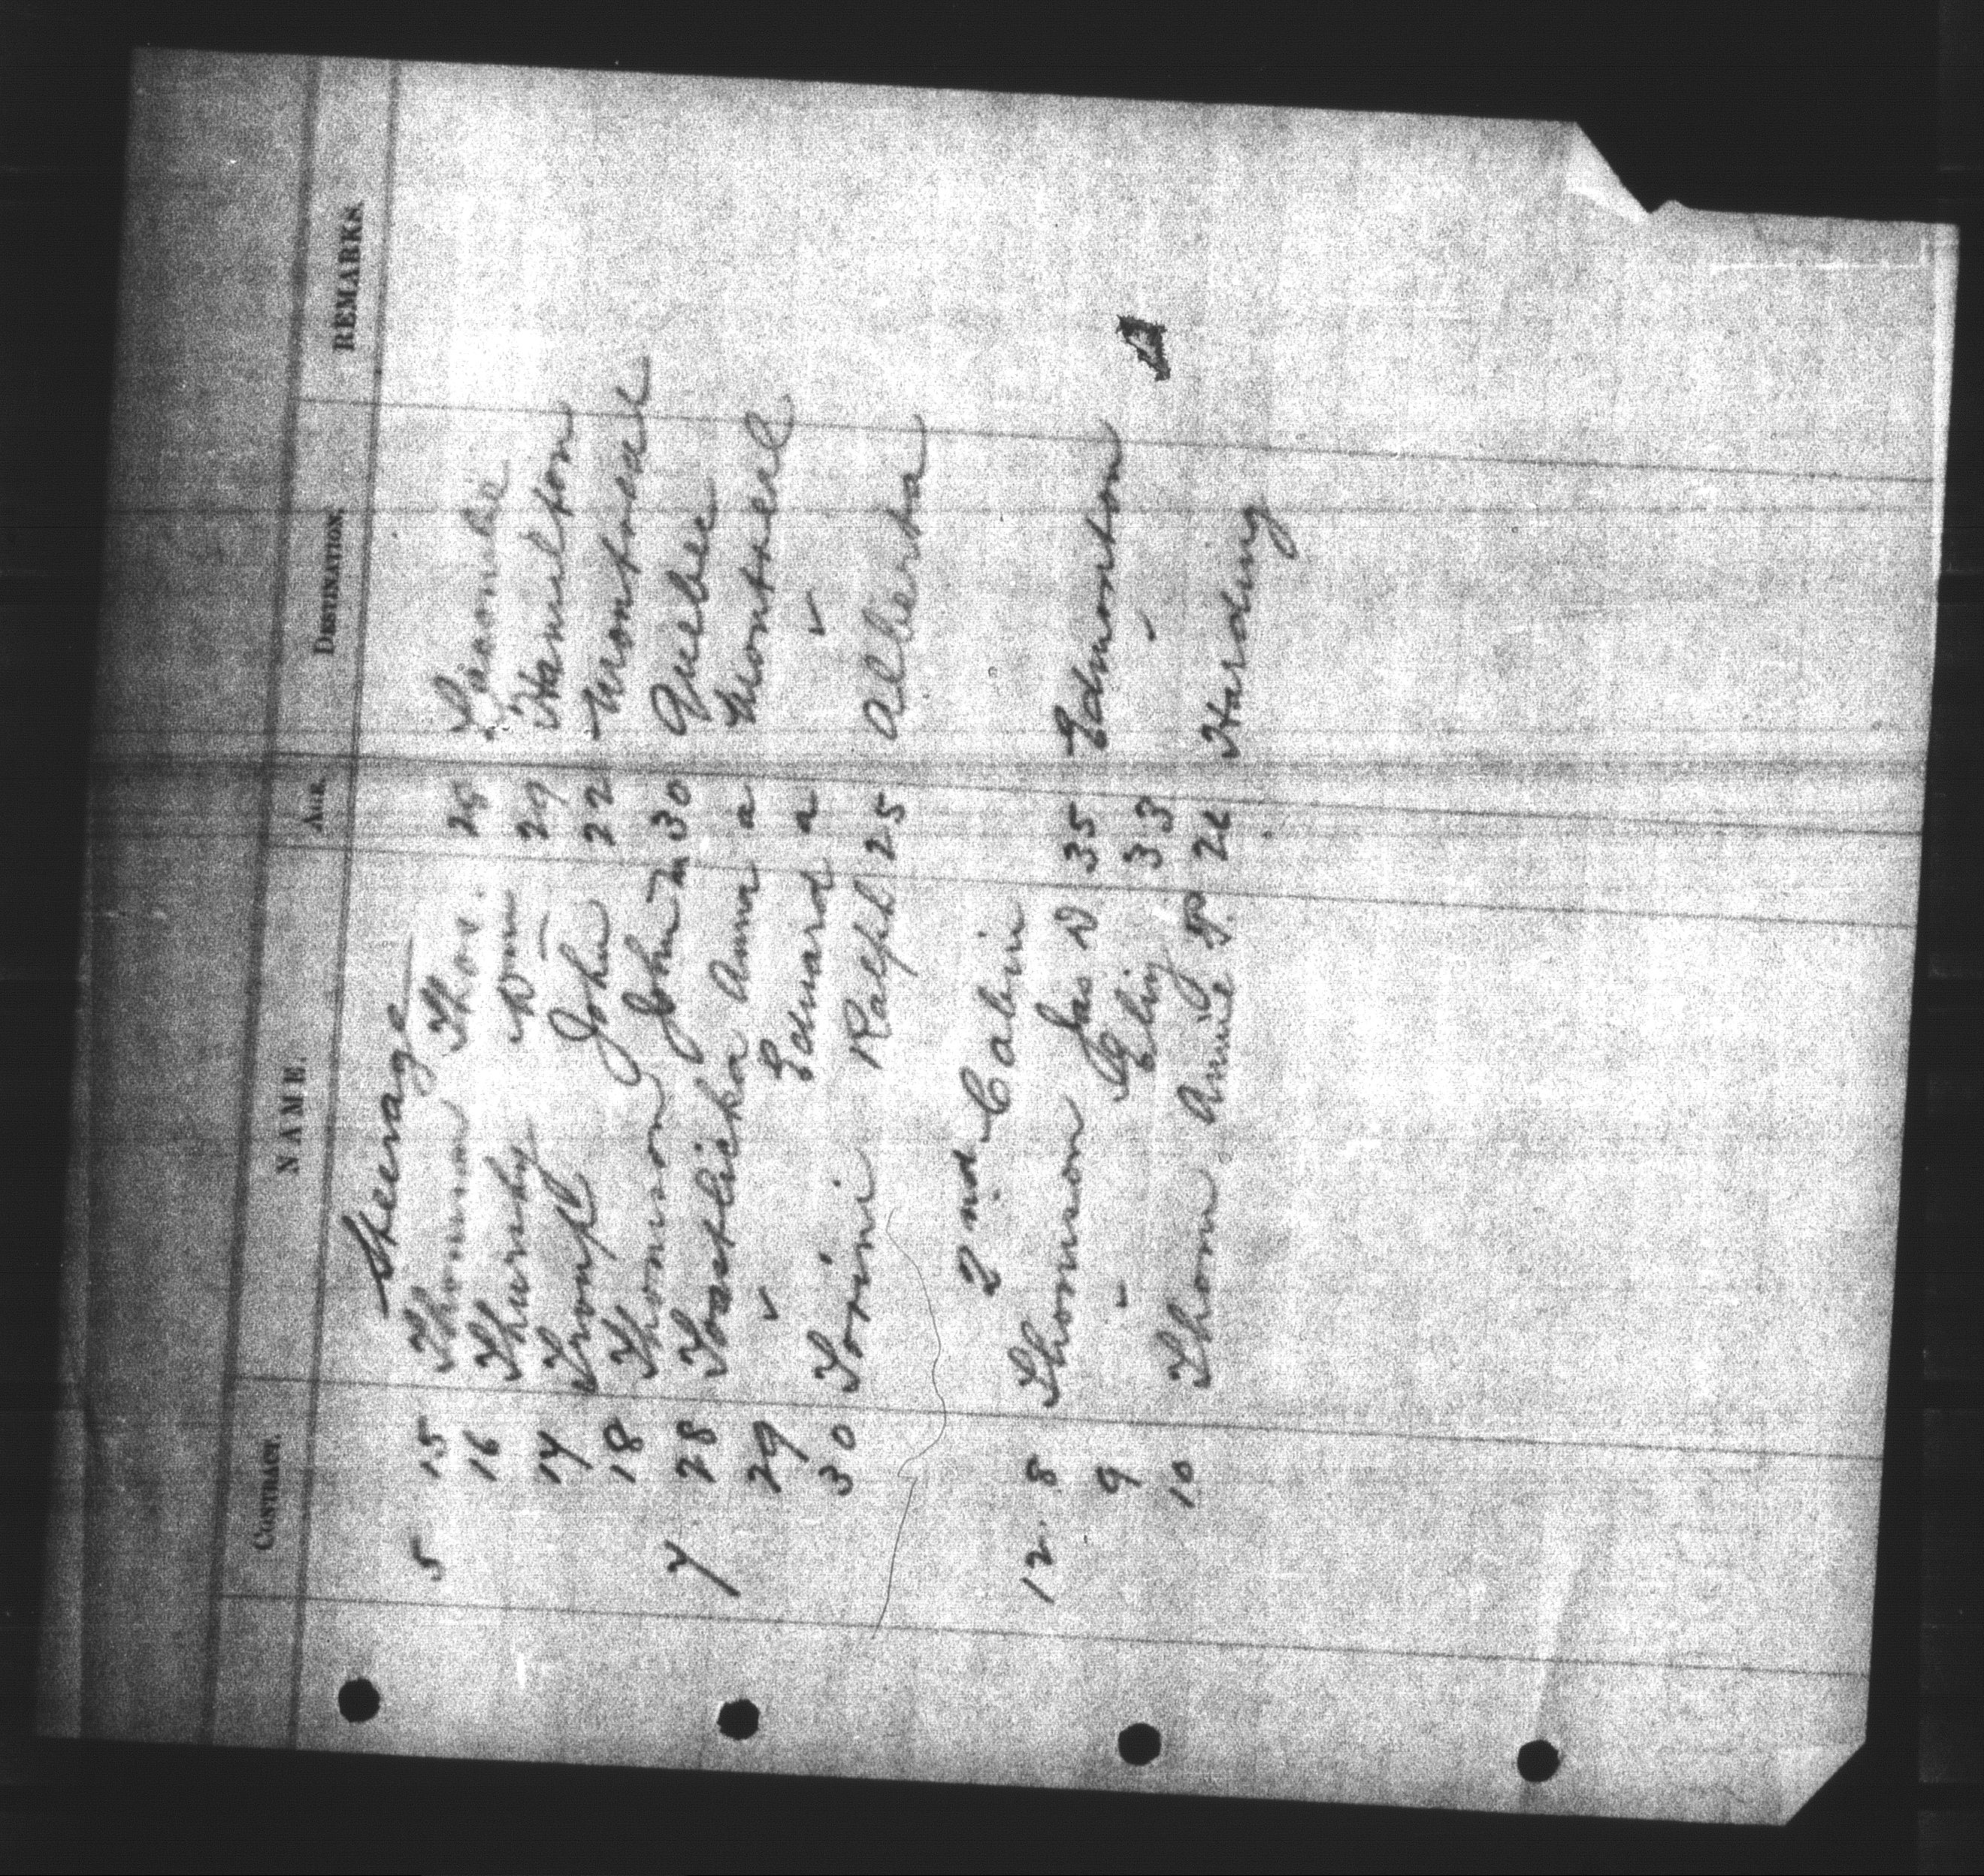 CONTRACT. NAME. AGE. DESTINATION. REMARKS.
Steerage
5 15 Thomson Thos. 28
16 Thursby Wm 29 Hamilton
17 John 22 Montreal
18 Thomson John 30 Quebec
7 28 Anna a Montreal
29 " Edward a "
30 Torini Ralph 25 Alberta
2nd Cabin
12. 8 Thomson Jas D 35 Edmonton
9 " Eliz 33 "
10 Thom Annie Harding